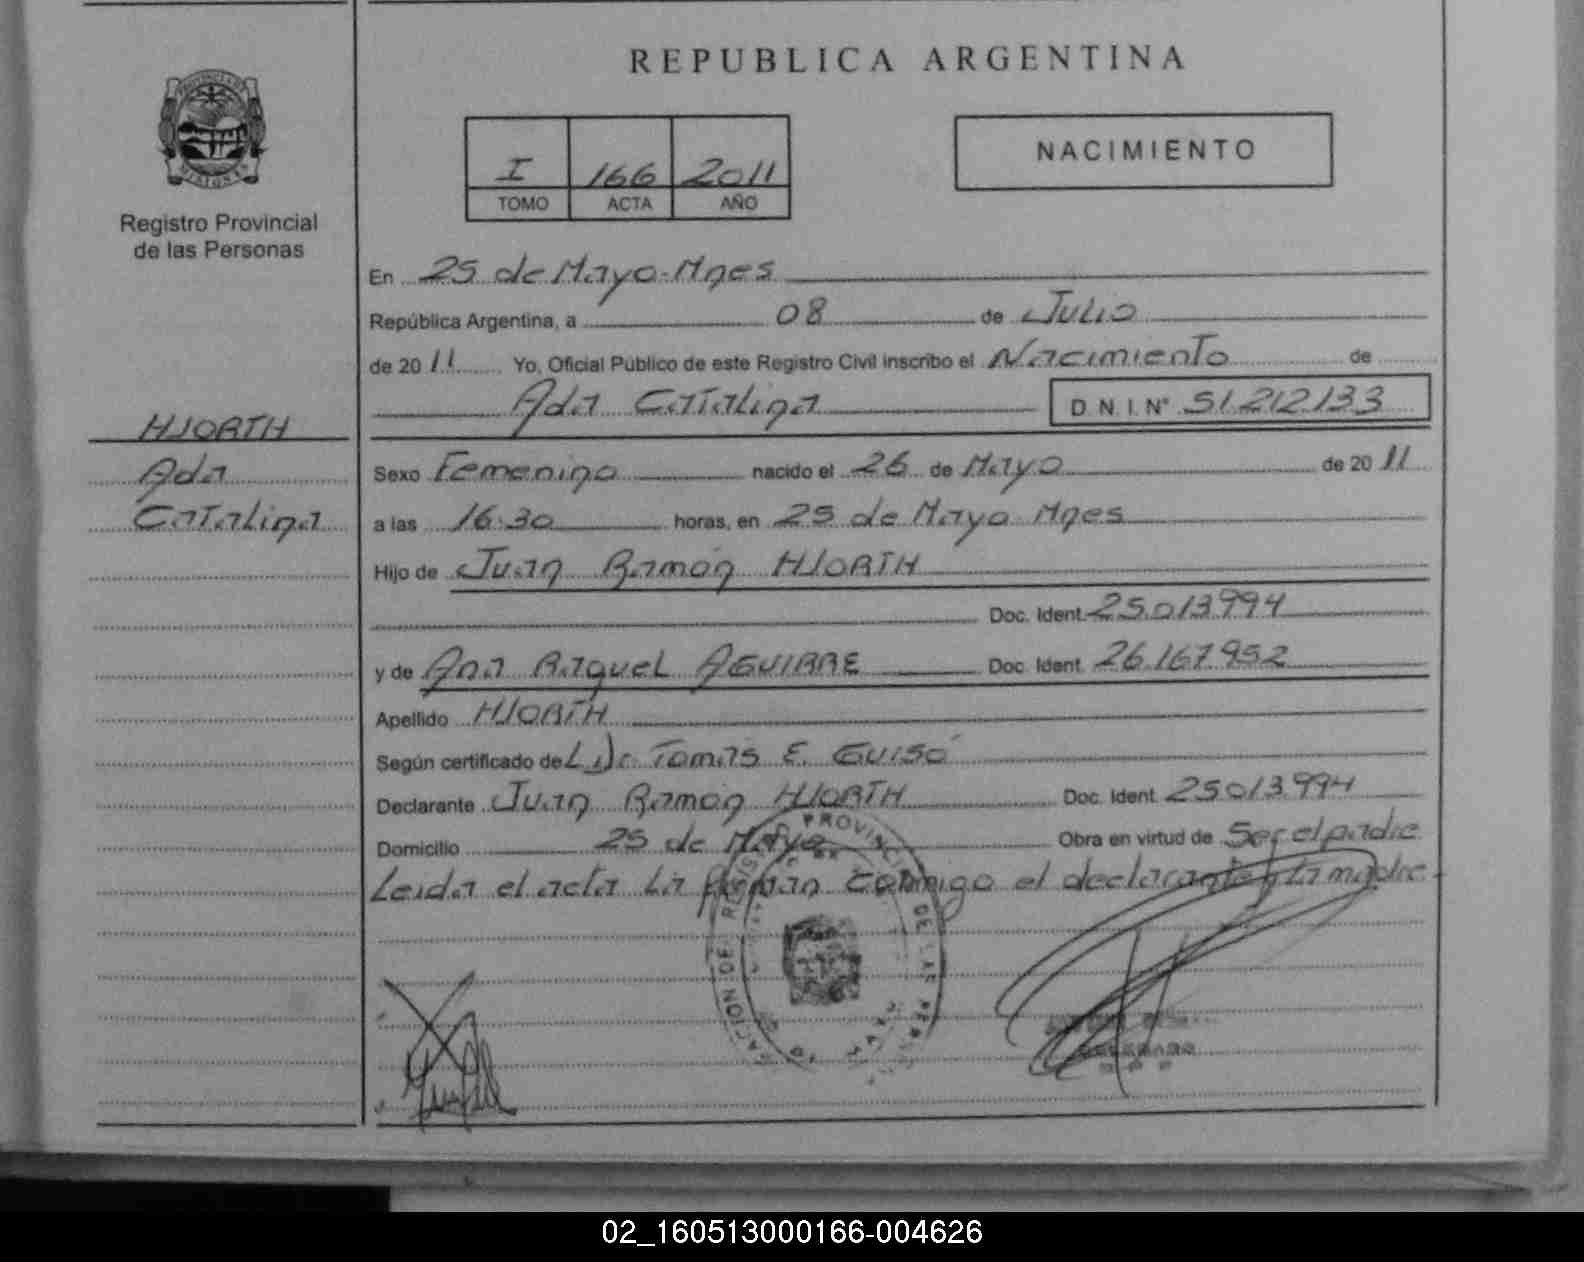 REPUBLICA ARGENTINA
PROVINCIA DE
MISIONES
Registro Provincial
de las Personas
I 166 2011
TOMO ACTA AÑO
NACIMIENTO
En 25 de Mayo-Mnes
República Argentina, a 08 de Julio
de 2011 Yo, Oficial Público de este Registro Civil inscribo el Nacimiento de
Ada Catalina D.N.I.N° 51.212.133
HJORTH
Ada
Catalina
Sexo Femenino nacido el 26 de Mayo de 2011
a las 16:30 horas, en 25 de Mayo Mnes
Hijo de Juan Ramón HJORTH
Doc. Ident. 25.013.994
y de Ana Raquel AGUIRRE Doc. Ident. 26.167.952
Apellido HJORTH
Según certificado de Tomás E. Guisó
Declarante Juan Ramón HJORTH Doc. Ident. 25.013.994
Domicilio 25 de Mayo Obra en virtud de Ser el padre
Leida el acta La firman conmigo el declarante y la madre
PROVINCIAL DE LAS
02_160513000166-004626